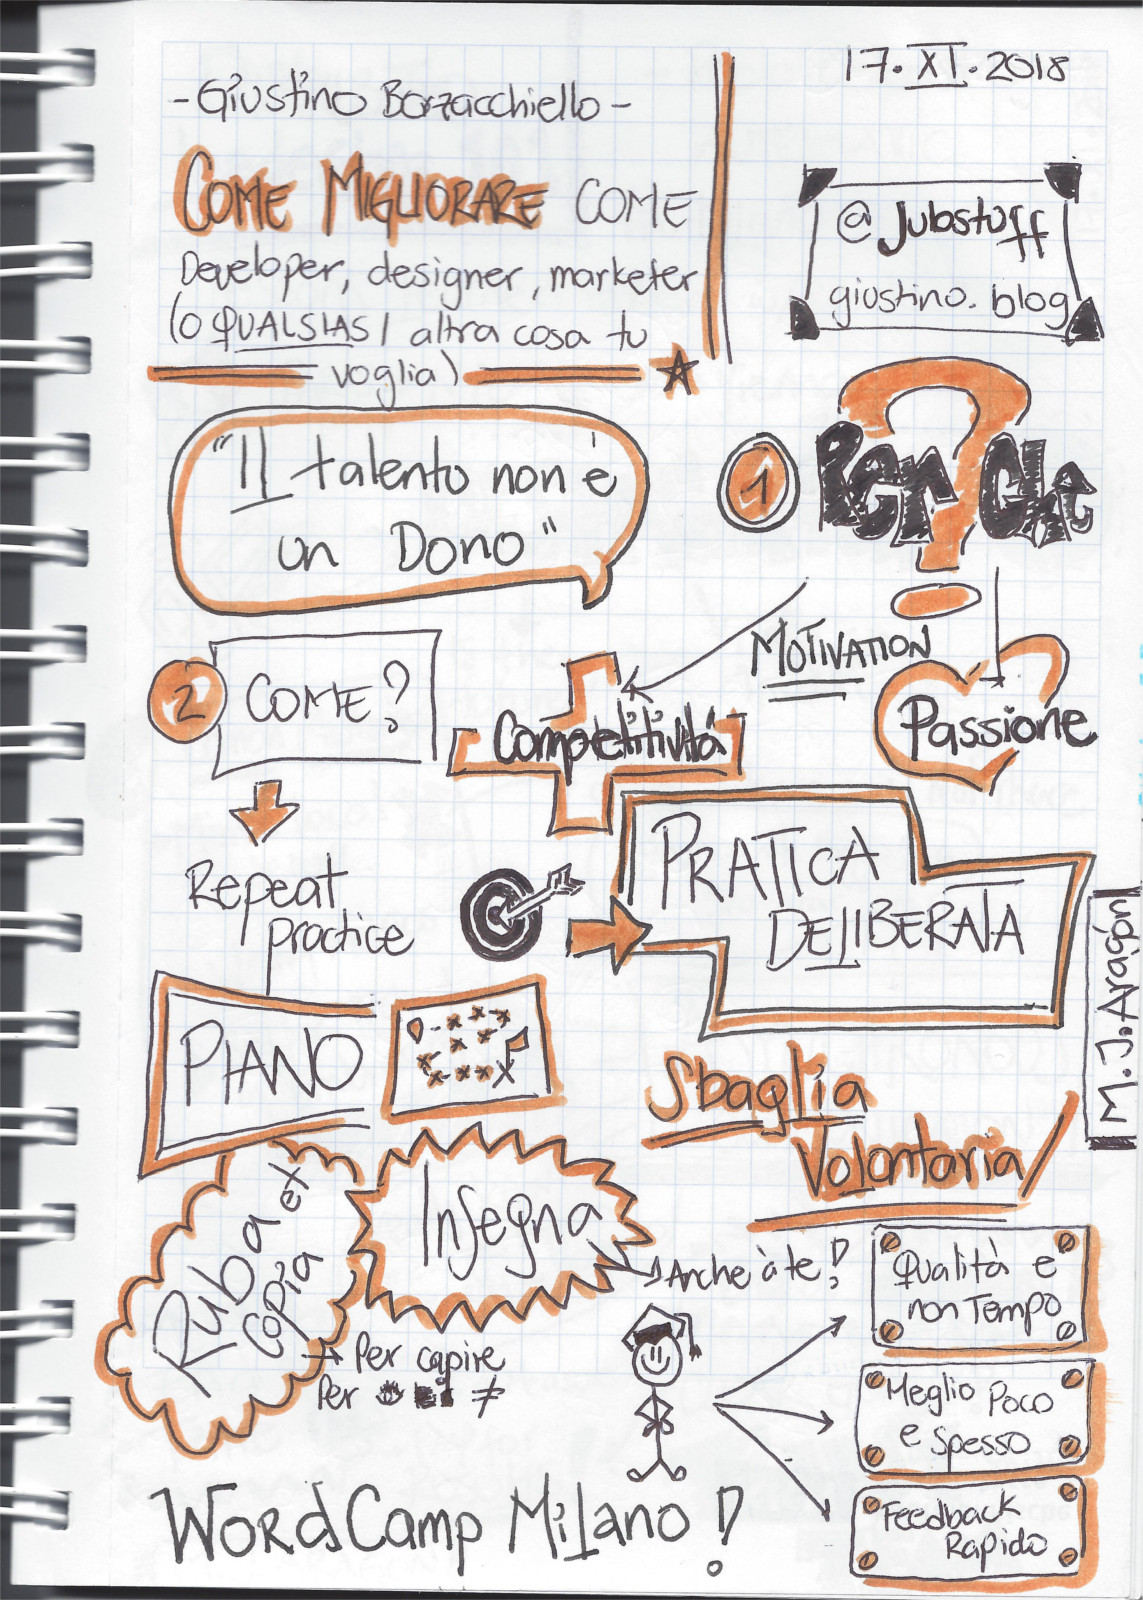 17.XI.2018
- Giustino Borzacchiello -
COME MIGLIORARE COME
Developer, designer, marketer
(o QUALSIASI altra cosa tu
voglia)
@Jubstuff
giustino.blog
"Il talento non è
un Dono"
1
Per ché
?
MOTIVATION
Competitività
Passione
2
COME?
Repeat
practice
PRATICA
DELIBERATA
PIANO
M.J.Aragón
Sbaglia
Volontaria
Ruba ex
copia
Insegna
Anche à te!
Per capire
Per ≠
Qualità e
non Tempo
Meglio Poco
e Spesso
Feedback
Rapido
WordCamp Milano!